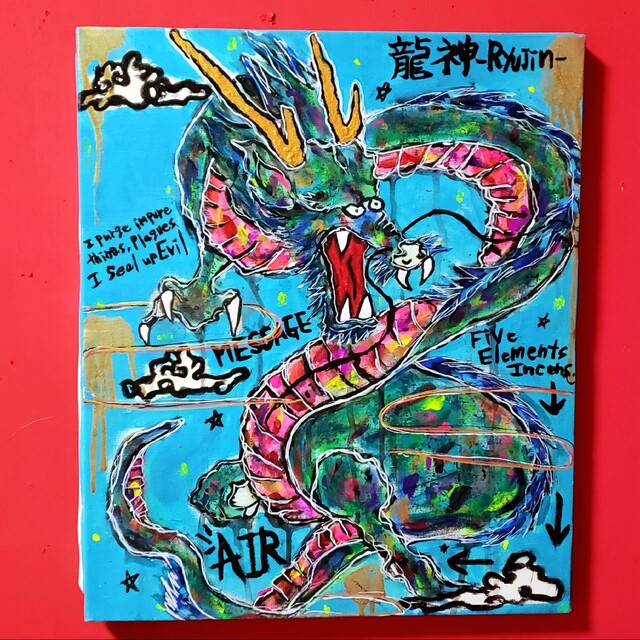 龍神-Ryujin-
I purge impure
things, Plagues
I Seal up Evil
MESSAGE
Five
Elements
Incens
AIR